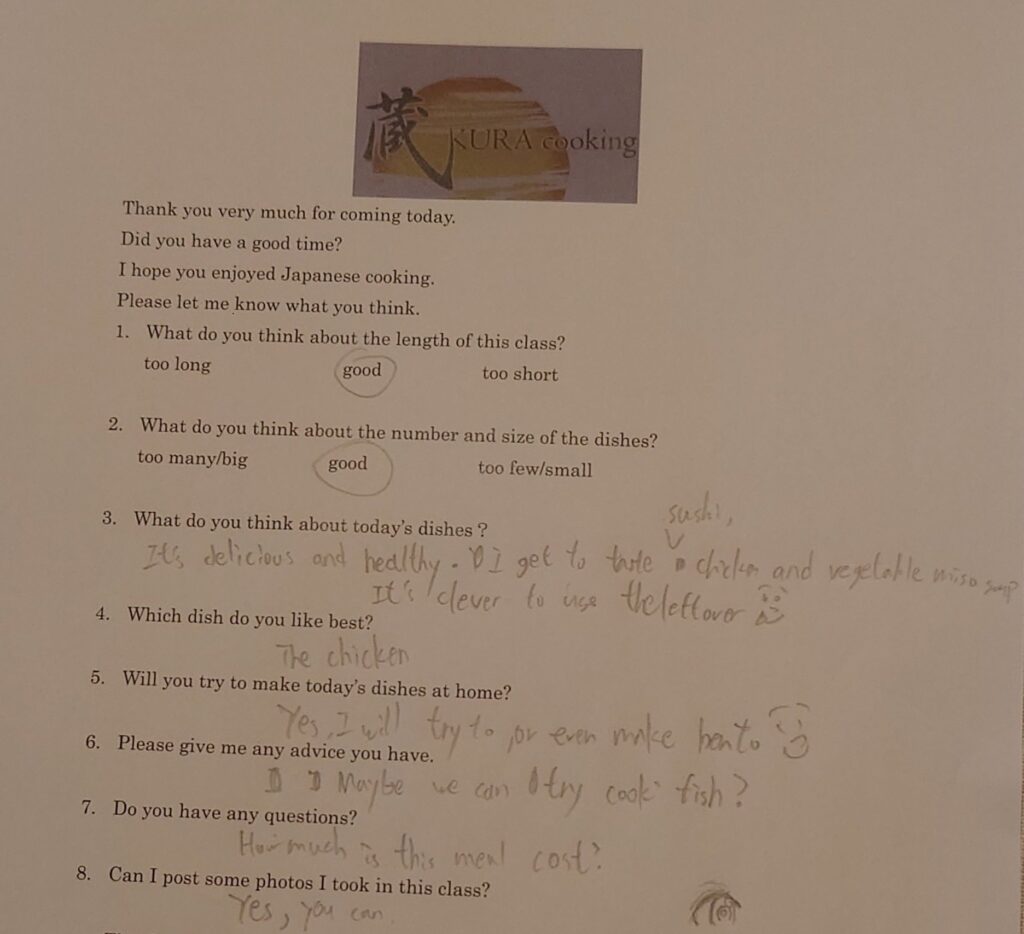 蔵 KURA cooking
Thank you very much for coming today.
Did you have a good time?
I hope you enjoyed Japanese cooking.
Please let me know what you think.
1. What do you think about the length of this class?
too long good too short
2. What do you think about the number and size of the dishes?
too many/big good too few/small
3. What do you think about today's dishes ?
sushi,
It's delicious and healthy. I get to taste chicken and vegetable miso soup
It's clever to use the leftover
4. Which dish do you like best?
The chicken
5. Will you try to make today's dishes at home?
Yes, I will try to, or even make bento
6. Please give me any advice you have.
Maybe we can try cook fish?
7. Do you have any questions?
How much is this meal cost?
8. Can I post some photos I took in this class?
Yes, you can.